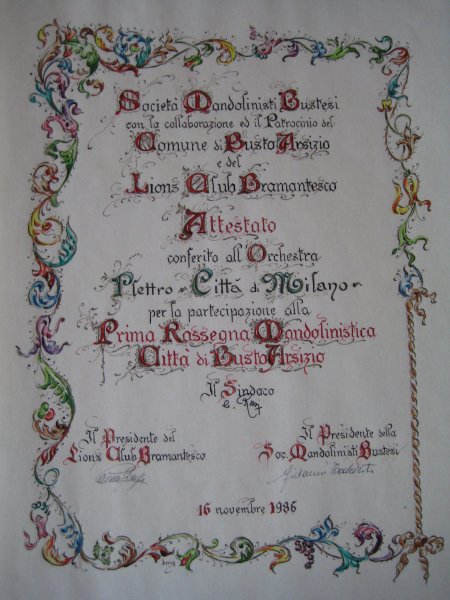 Società Mandolinisti Bustesi
con la collaborazione ed il Patrocinio del
Comune di Busto Arsizio
e del
Lions Club Bramantesco
Attestato
conferito all'Orchestra
Plettro "Città di Milano"
per la partecipazione alla
Prima Rassegna Mandolinistica
Città di Busto Arsizio
Il Sindaco
Il Presidente del
Lions Club Bramantesco
Il Presidente della
Soc. Mandolinisti Bustesi
16 novembre 1986